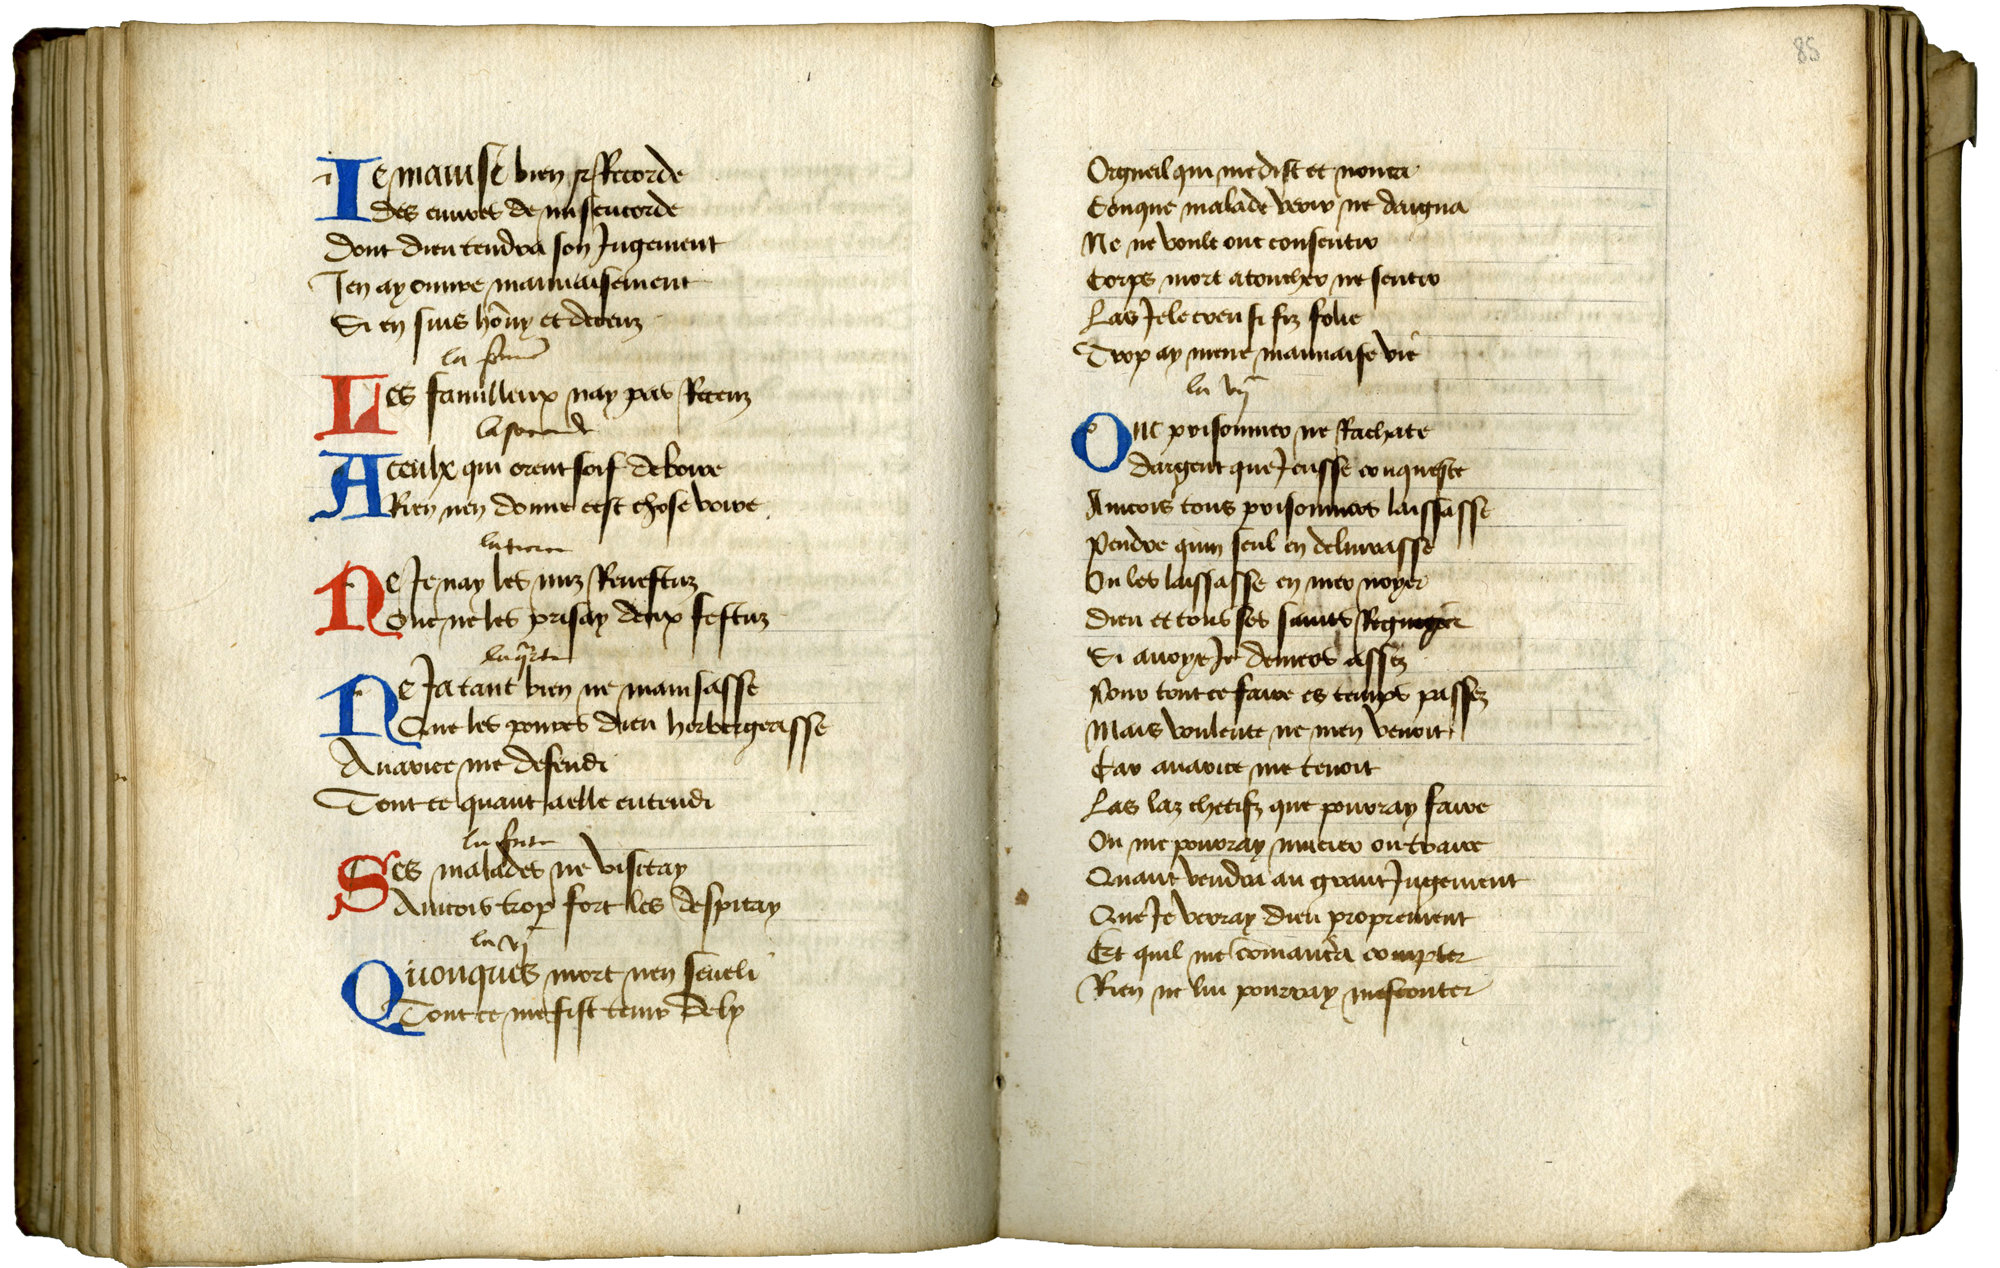 Je mauise bien et Recorde
des euures de misericorde
dont dieu tendra son Jugement
Jen ay ouure mauuaisement
Si en suis hōny et deceuz
la premiere
Les familleux nay pas Receuz
la seconde
A ceulx qui orent soif de boire
Rien nen donne cest chose voire
la tierce
Ne Je nay les nuz Reuestuz
Onc ne les prisay deux festuz
la qrte
Ne Ja tant bien ne mamsasse
Que les poures dieu herbergasse
Auarice me defendi
Tout ce quant a elle entendi
la quinte
Ses malades ne visetay
Aincois trop fort les despitay
la vj
Quonques mort nen seueli
Tout ce me fist tenir de ly
85
Orgueil qui me dist et nonca
Conque malade veoir ne daigna
Ne ne voult onc consentir
Corps mort atoucher ne sentir
Las Je le creu si fiz folie
Trop ay mene mauuaise vie
la vij
Onc prisonnier ne Rachate
dargent que Jeusse conqueste
Aincois tous prisonniers laissasse
Pendre quun seul en deliurasse
Ou les laissasse en mer noyer
dieu et tous ses saints
Si auoye Je deniers assez
Pour tout ce faire es temps passez
Mais voulente ne men venoit
Car auarice me tenoit
Las laz chetifz que pourray faire
Ou me pourray mucier ou traire
Quant vendra au grant Jugement
Que Je verray dieu proprement
Et quil me cōmandra compter
Rien ne lui pourray mesconter